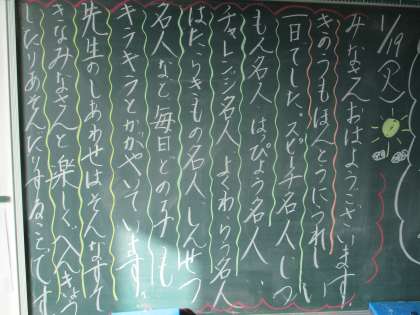 1/19(火)
みなさんおはようございます。
きのうもほんとうにうれしい
一日でした。スピーチ名人、しつ
もん名人、はっぴょう名人、
チャレンジ名人、よくわらう名人
はたらきもの名人、しんせつ
名人など毎日どの子も
キラキラとかがやいています。
先生のしあわせはそんなすて
きなみなさんと楽しくべんきょう
したりあそんだりすることです